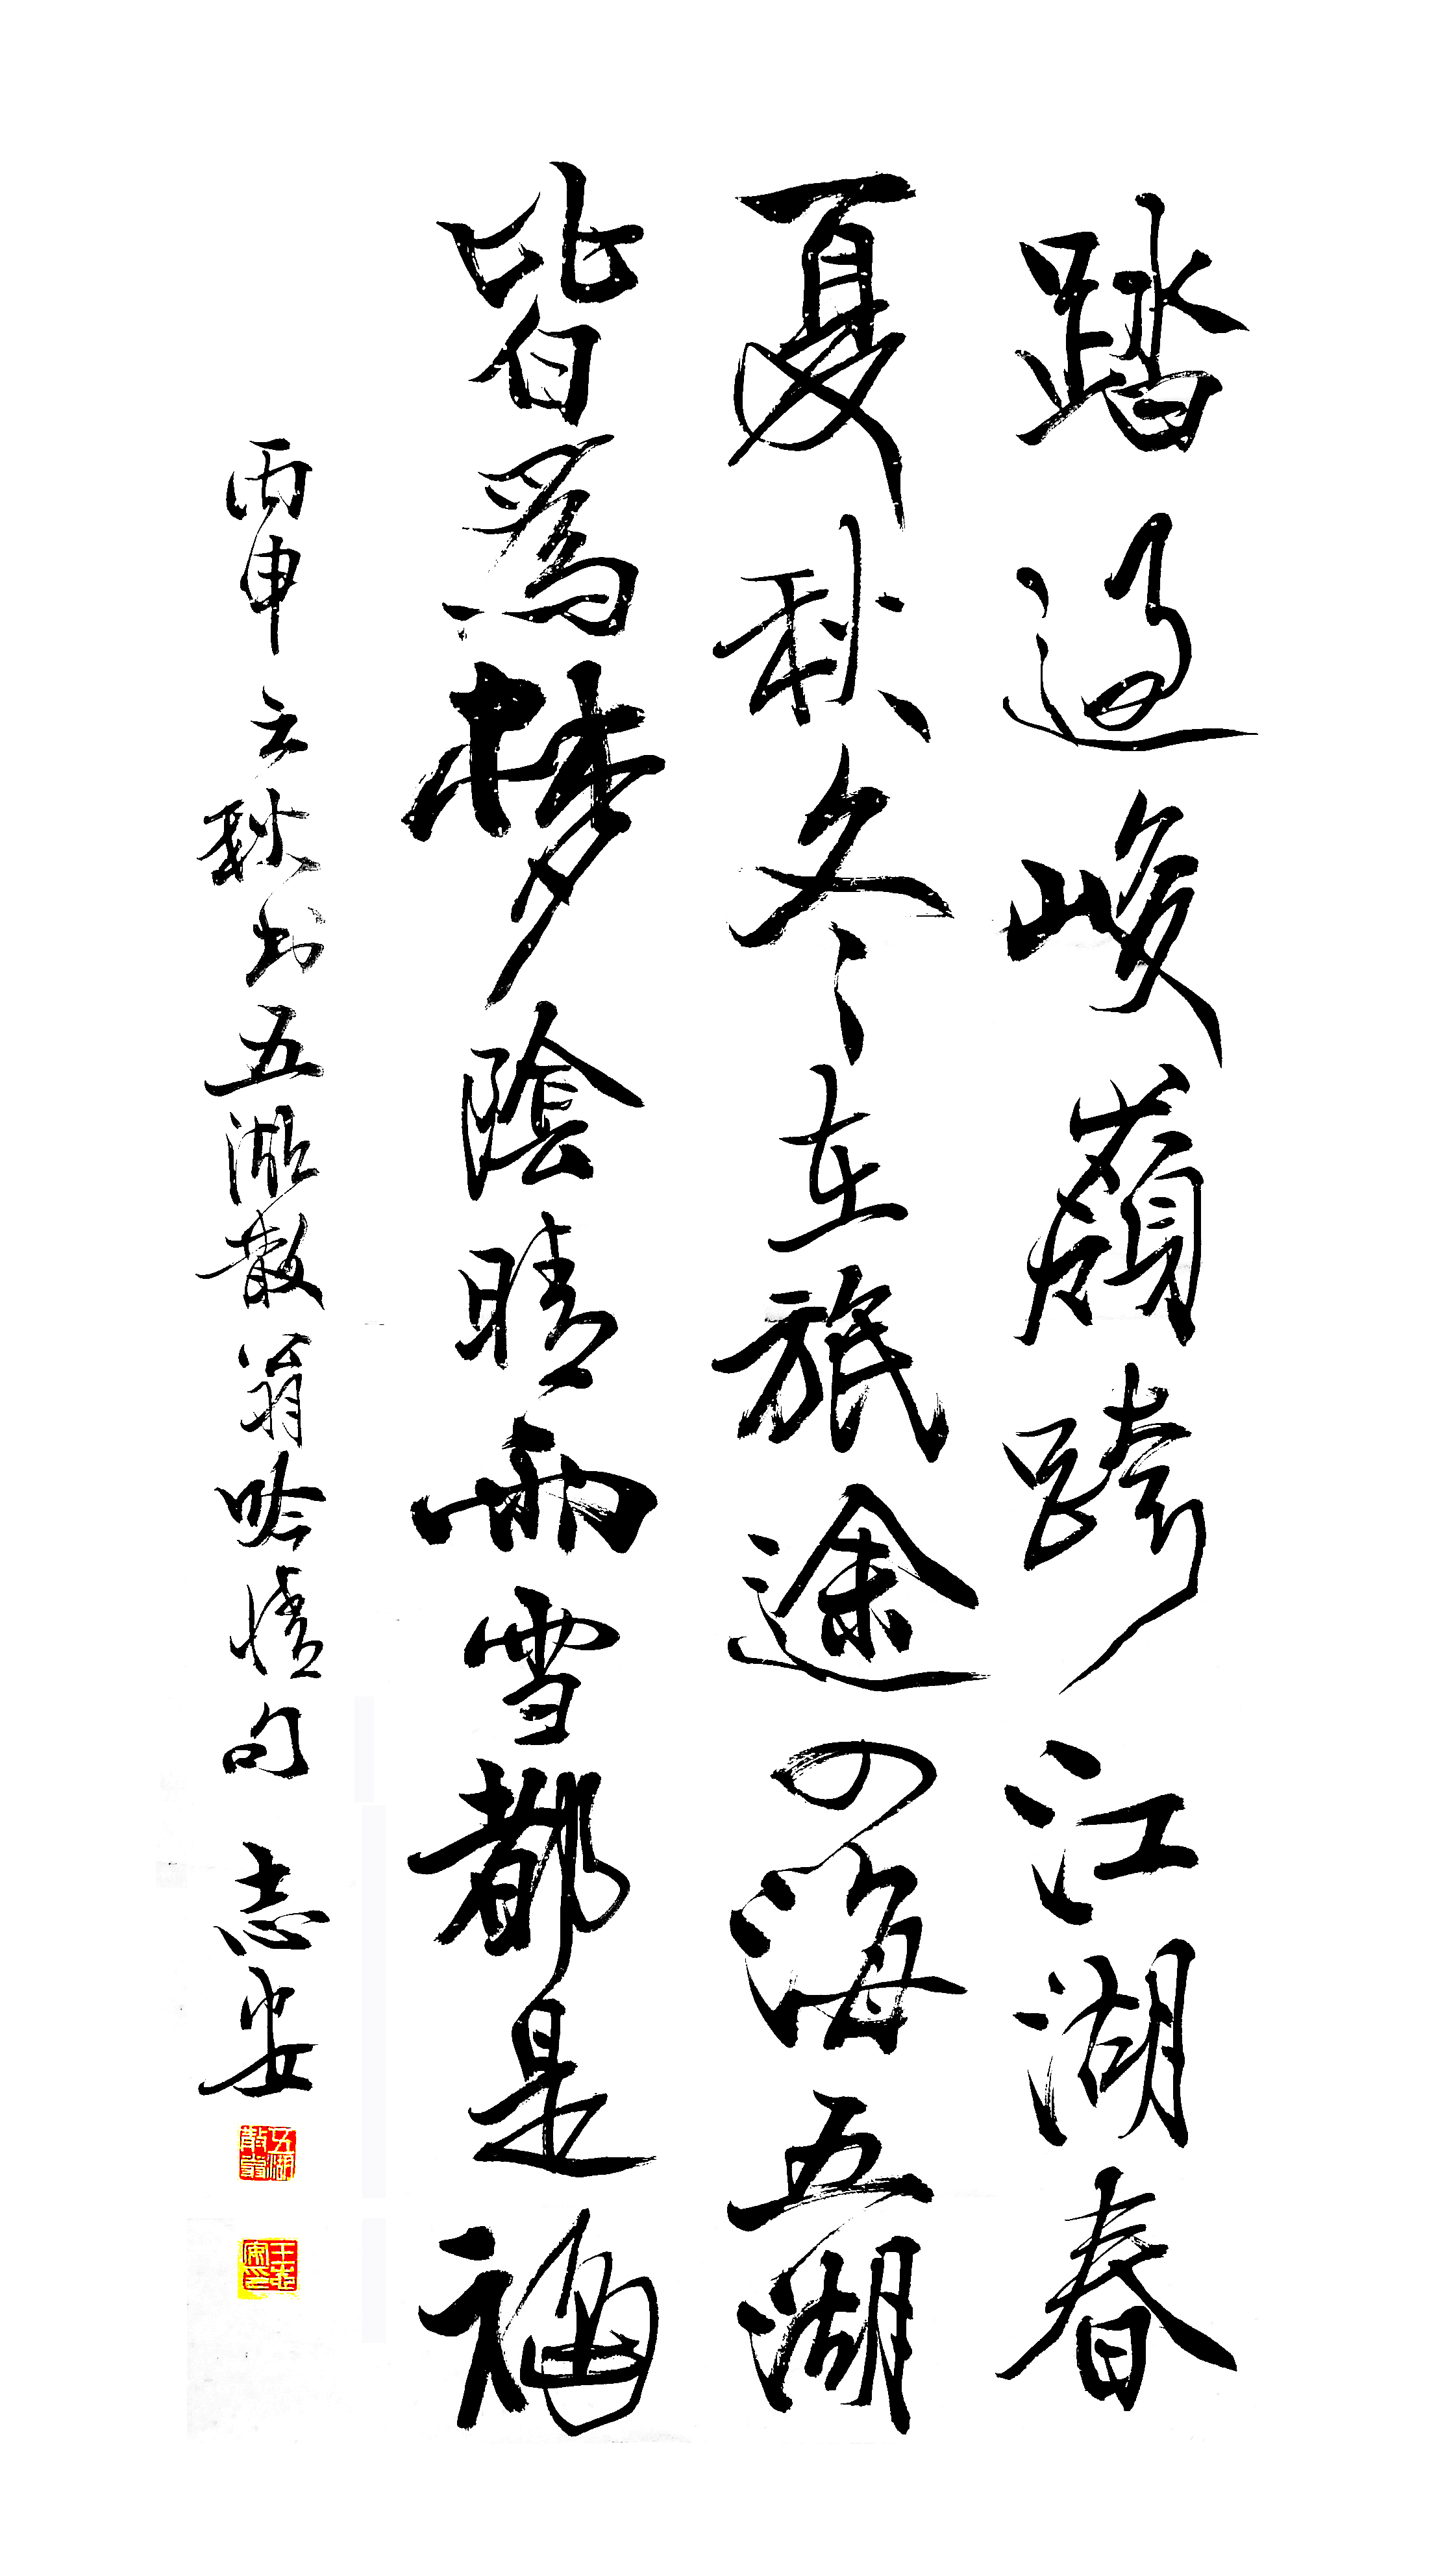 踏过峻巅跨江湖春
夏秋冬在旅途四海五湖
皆為梦陰晴雨雪都是福
丙申之秋书五湖散翁吟情句 志安
五湖散翁
王志安印